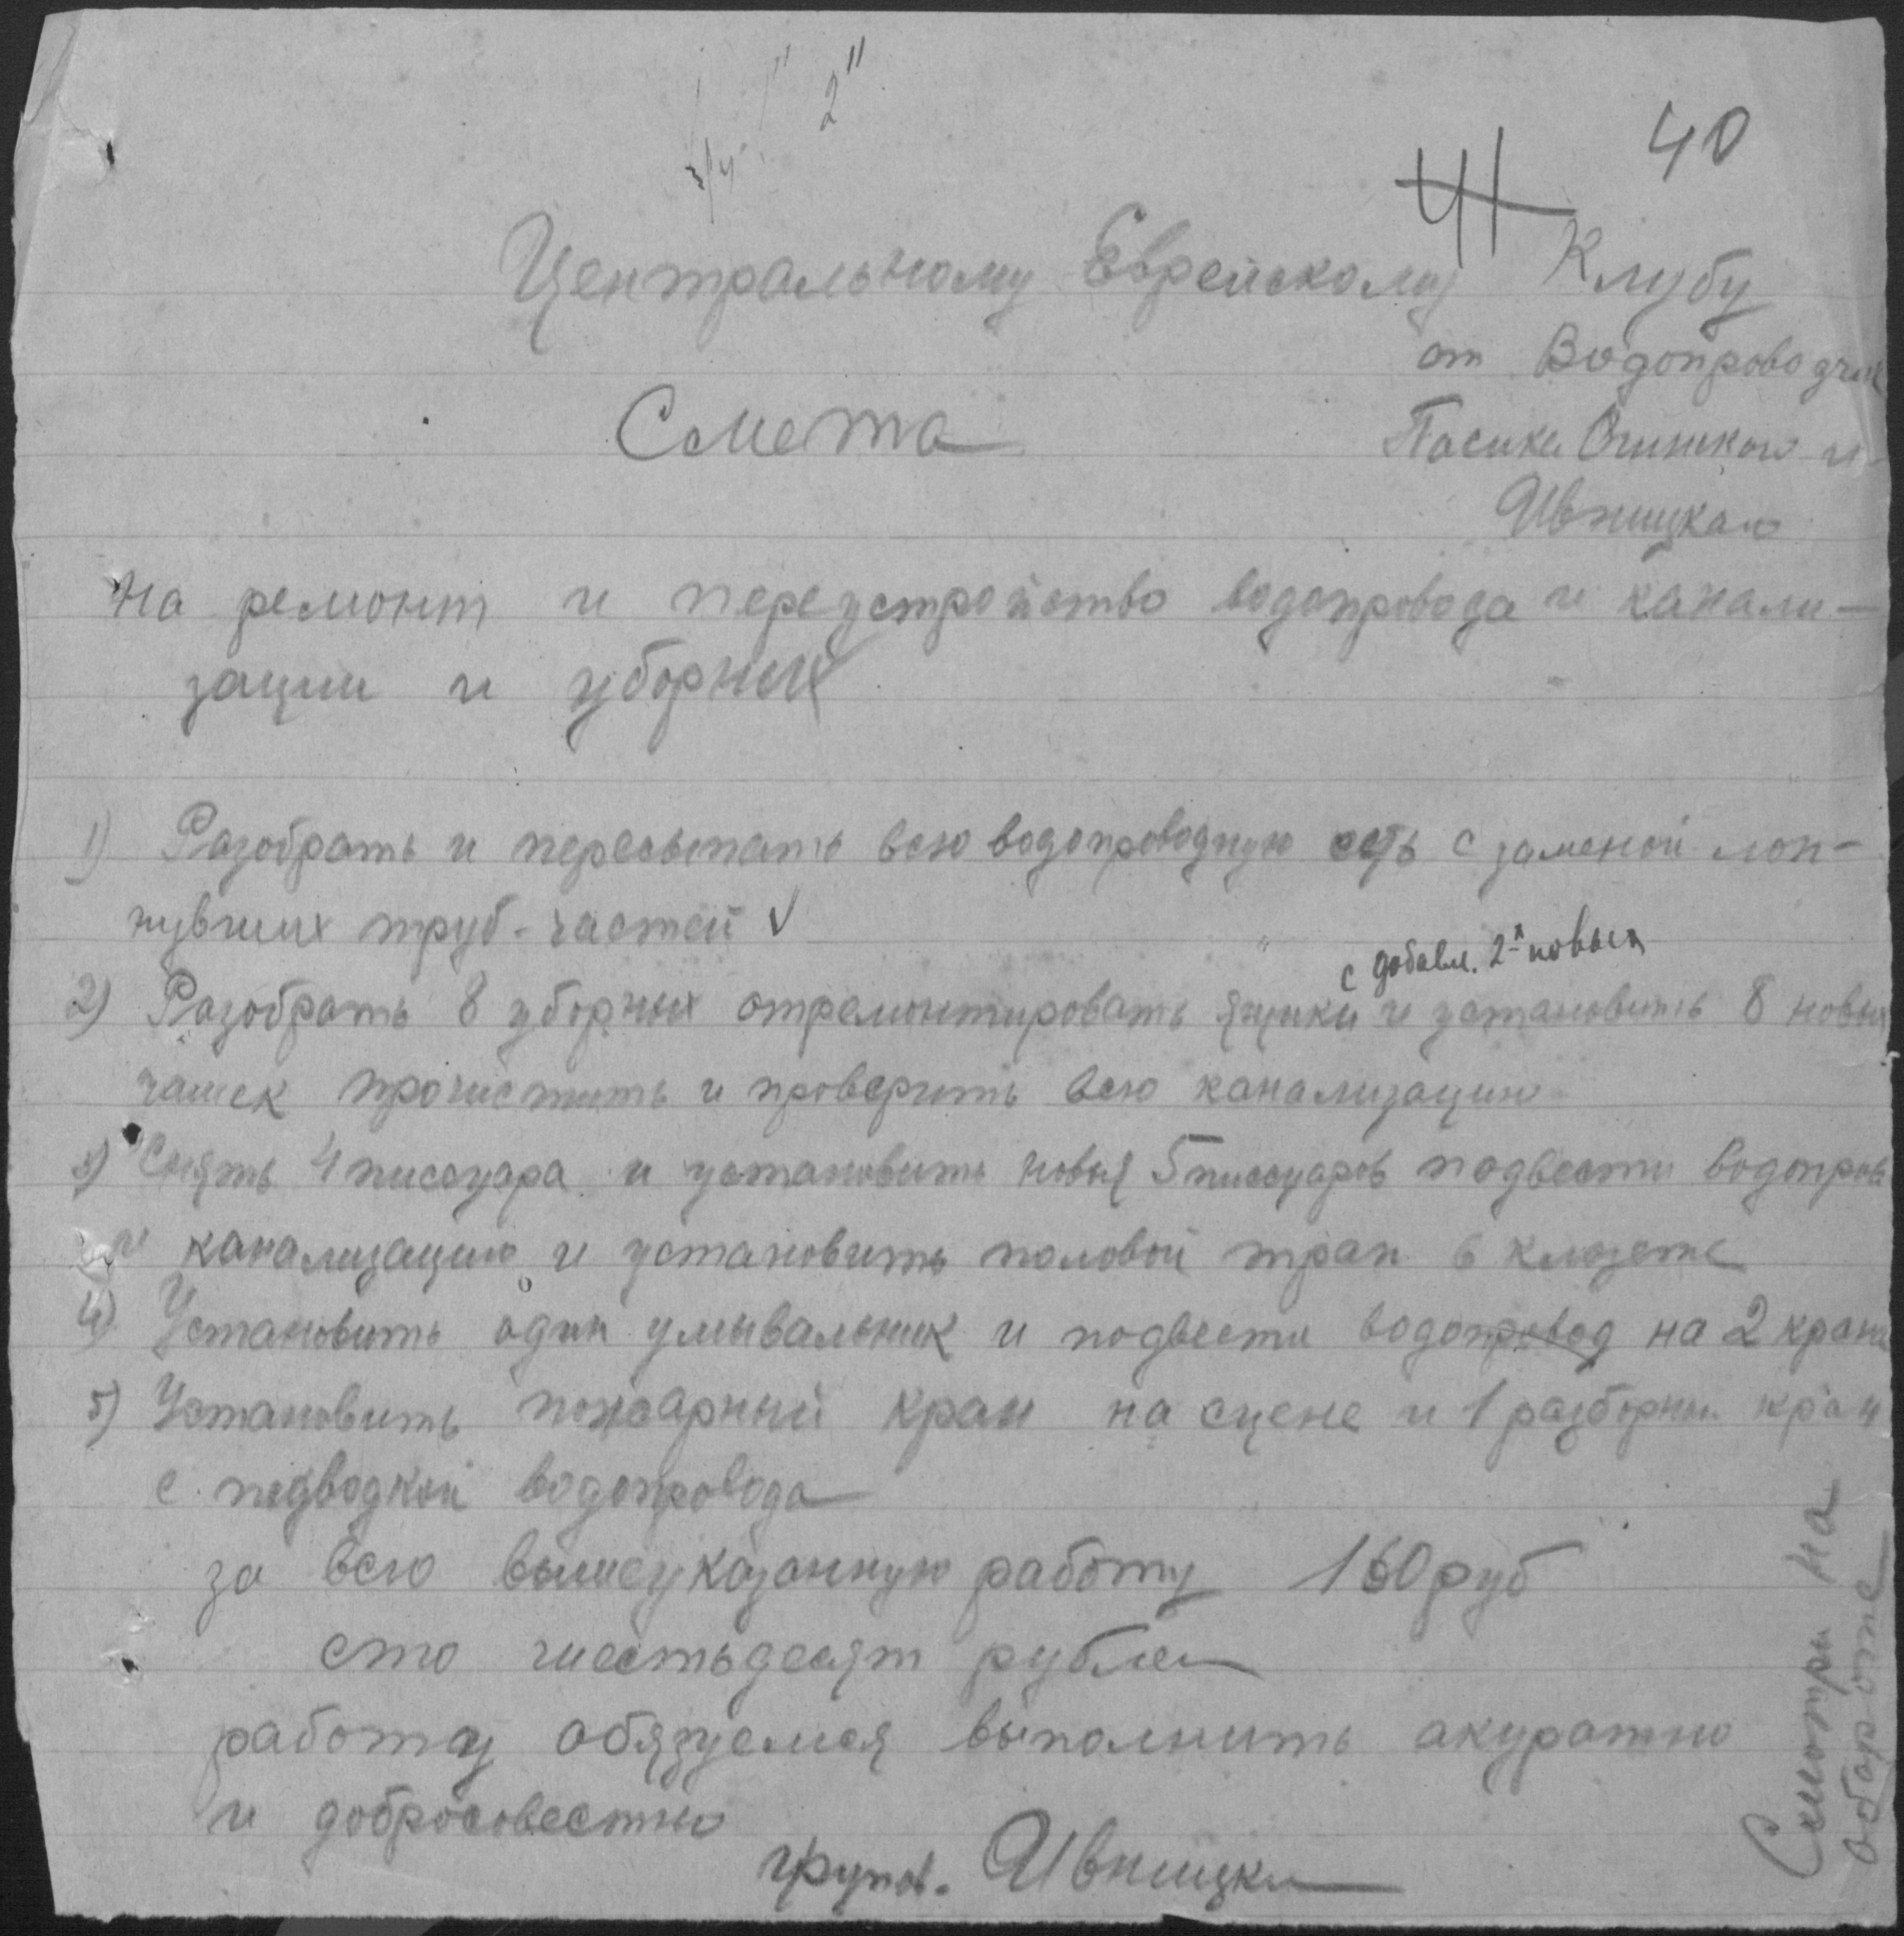 2"
3/4"
40
41
Центральному Еврейскому Клубу
от Водопроводчик
Смета
Пасика Огинского и
Ивницкого
на ремонт и переустройство водопровода и канали-
зации и уборных
1) Разобрать и пересыпать всю водопроводную сеть с заменой лоп-
нувших труб-частей √
с добавл. 2х новых
2) Разобрать 8 уборных отремонтировать ящики и установить 8 новых
чашек прочистить и проверить всю канализацию
3) Снять 4 писсуара и установить новых 5 писсуаров подвести водопров
и канализацию и установить половой трап в клозете
4) Установить один умывальник и подвести водопровод на 2 крана
5) Установить пожарный кран на сцене и 1 разборный кран
с подводкой водопровода
за всю вышеуказанную работу 160 руб
сто шестьдесят рублей
работу обязуемся выполнить акуратно
и добросовестно
групов. Ивницки
Смотри на
обороте